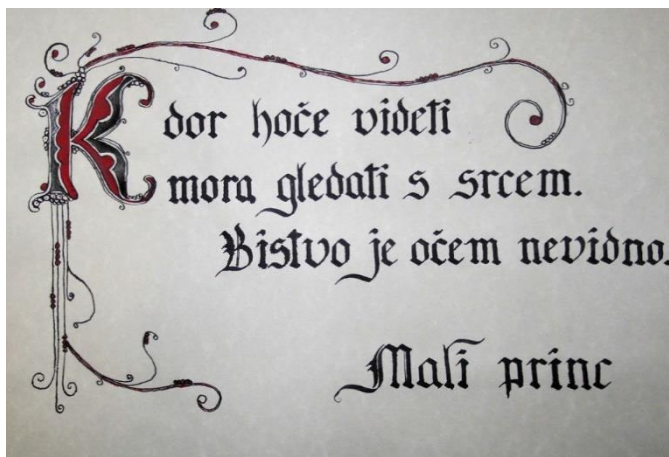 Kdor hoče videti
mora gledati s srcem.
Bistvo je očem nevidno.
Mali princ